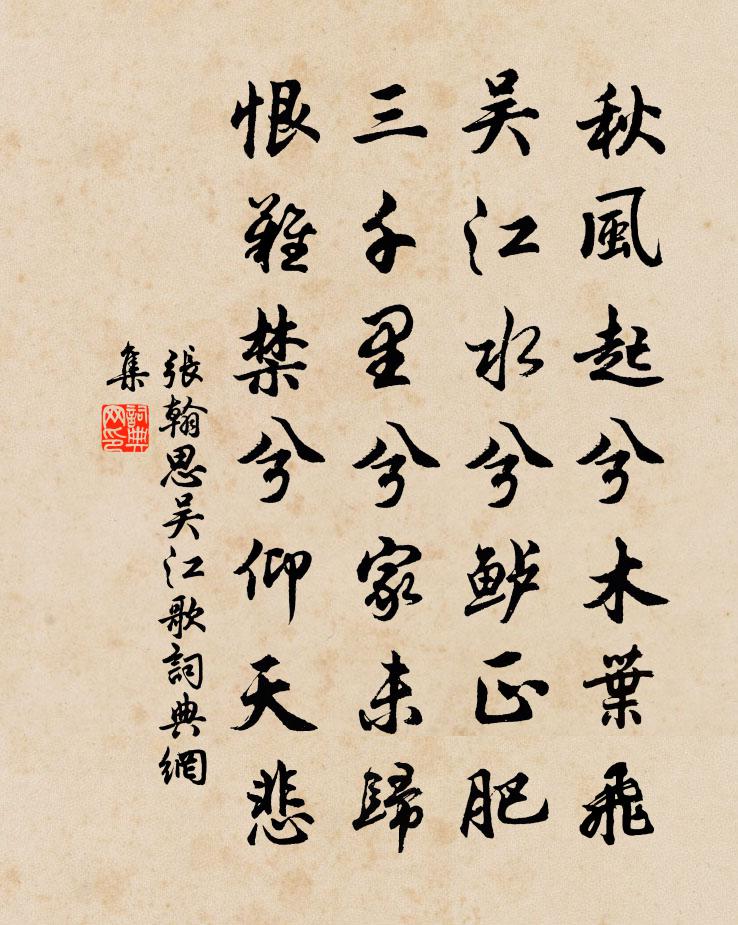 秋風起兮木葉飛
吴江水兮鲈正肥
三千里兮家未歸
恨難禁兮仰天悲
張翰思吴江歌詞典網
集
詞典
网印